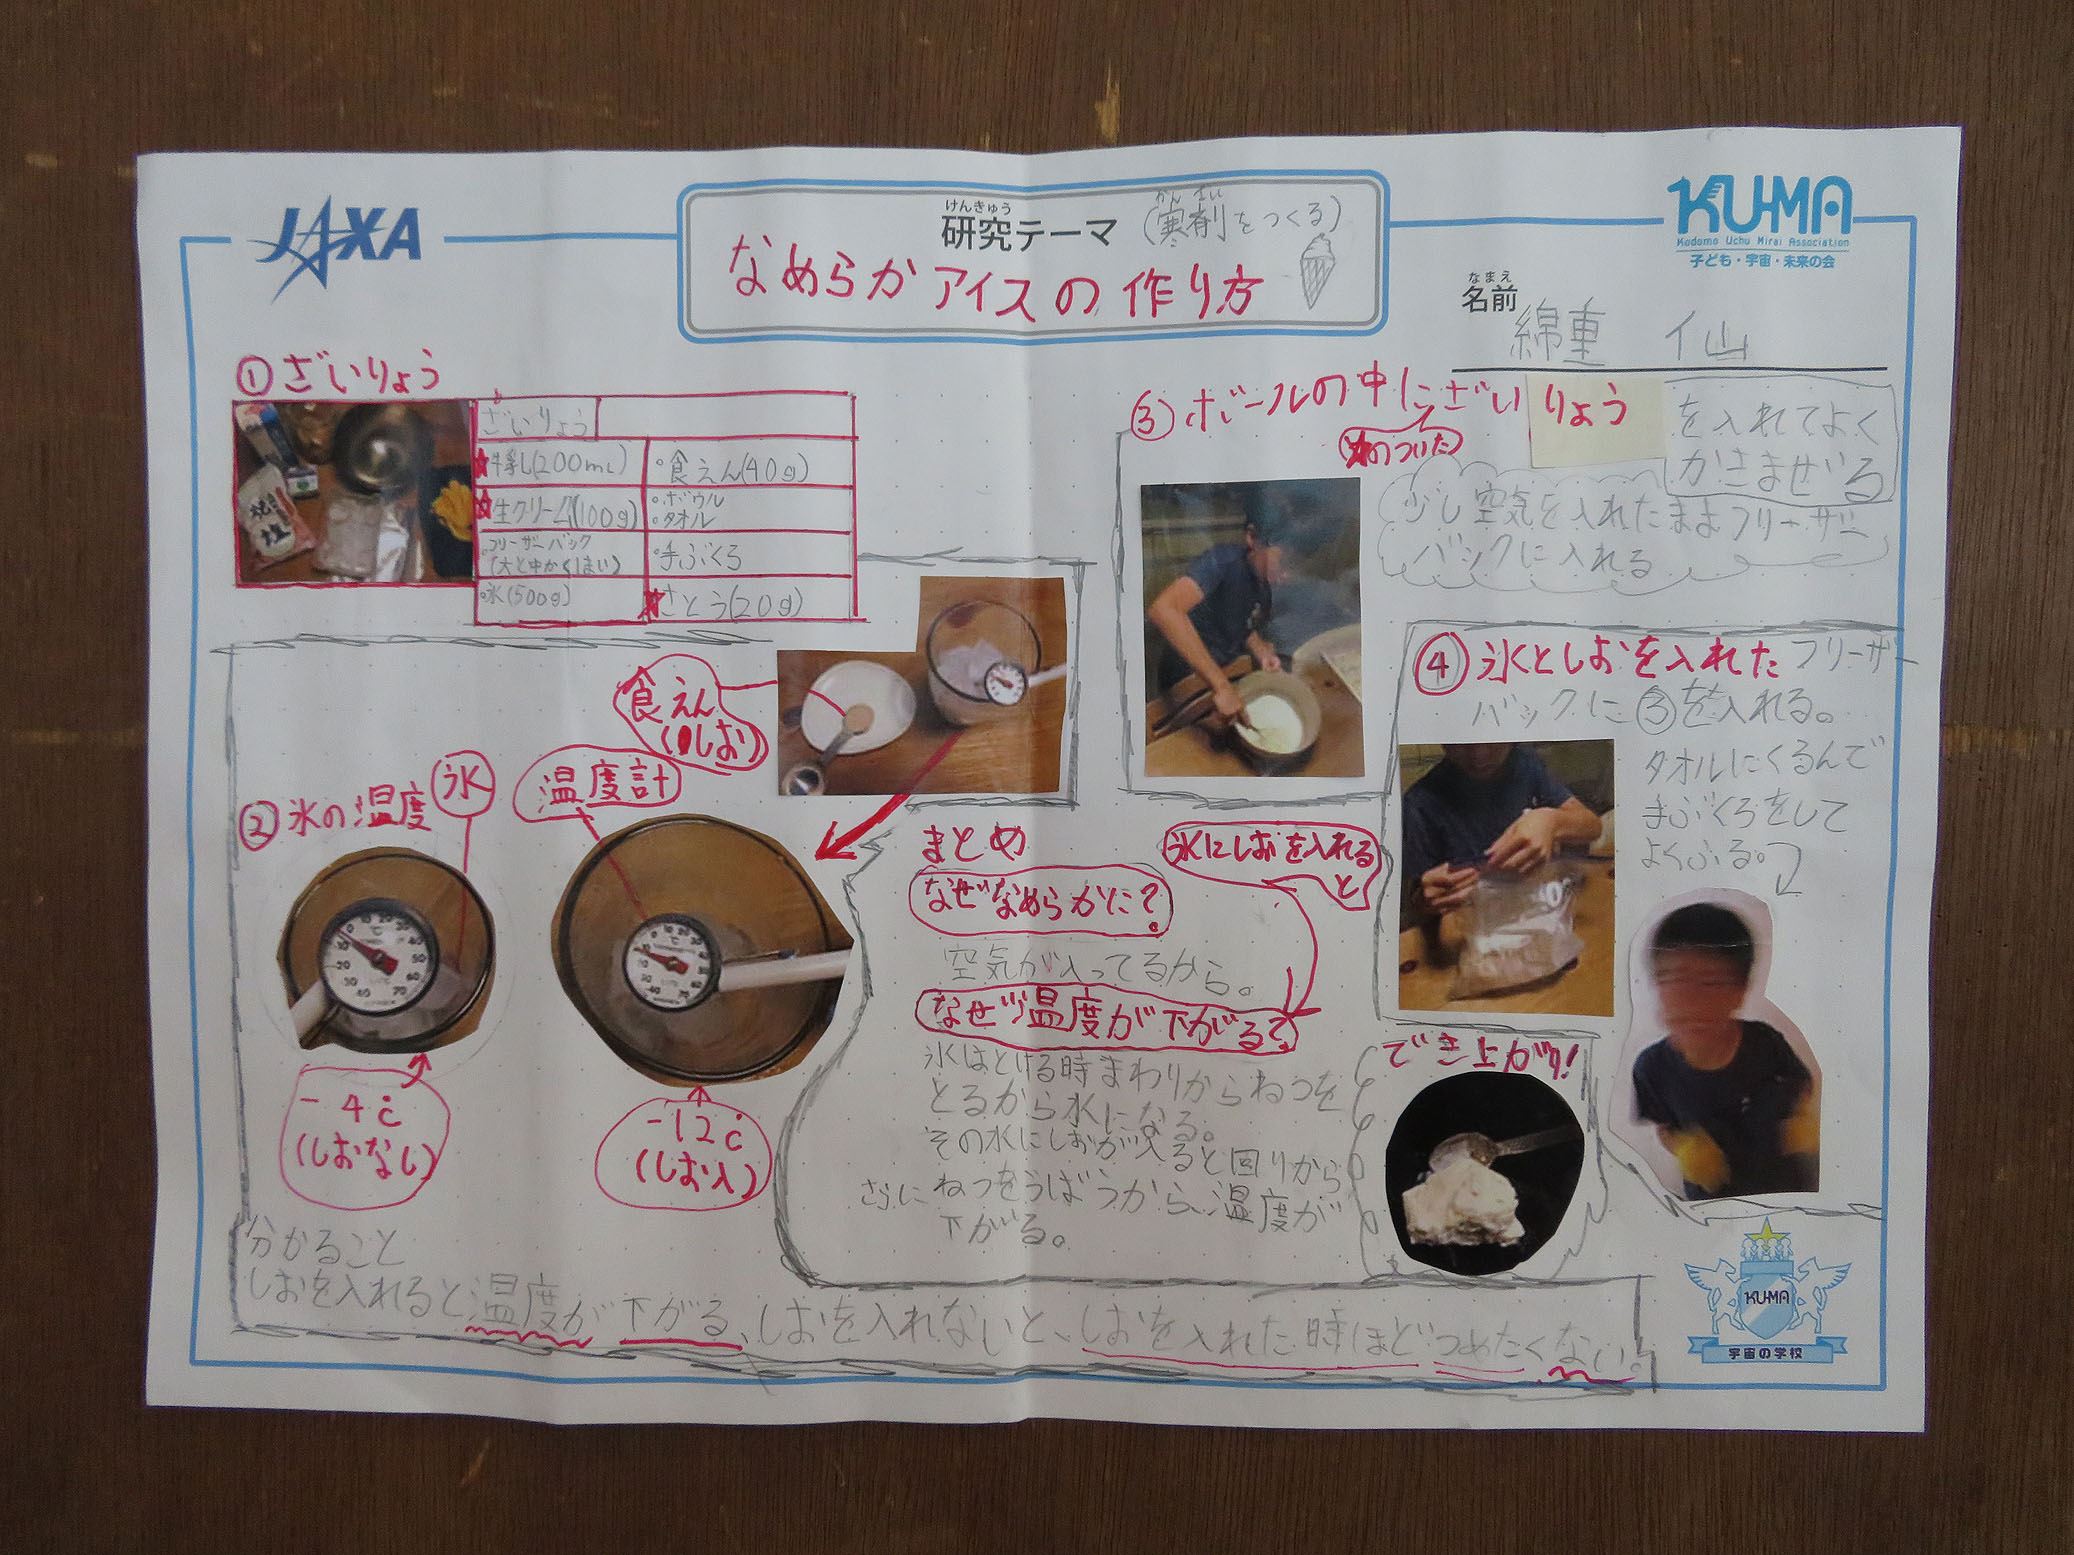 JAXA
けんきゅう
研究テーマ
かんざい
(寒剤をつくる)
なめらかアイスの作り方
KU-MA
Kodomo Uchu Mirai Association
子ども・宇宙・未来の会
なまえ
名前
綿重 仙
①ざいりょう
ざいりょう
★牛乳(200mL)
・食えん(40g)
★生クリーム(100g)
・ボウル
・タオル
・フリーザーバック
(大と中かくしまい)
・手ぶくろ
・氷(500g)
★さとう(20g)
焼き塩
食えん
(しお)
②氷の温度
氷
温度計
-4℃
(しおなし)
-12℃
(しお入)
分かること
しおを入れると温度が下がる、しおを入れないと、しおを入れた時ほどつめたくない。
③ボールの中にざいりょうを入れてよく
かきまぜる
(★のついた)
少し空気を入れたままフリーザー
バックに入れる
④氷としおを入れたフリーザー
バックに③を入れる。
タオルにくるんで
手ぶくろをして
よくふる。
まとめ
なぜなめらかに?
空気が入ってるから。
氷にしおを入れる
と
なぜ温度が下がる?
氷はとける時まわりからねつを
とるから水になる。
その水にしおが入ると回りから
さらにねつをうばうから、温度が
下がる。
でき上がり!
KU-MA
宇宙の学校